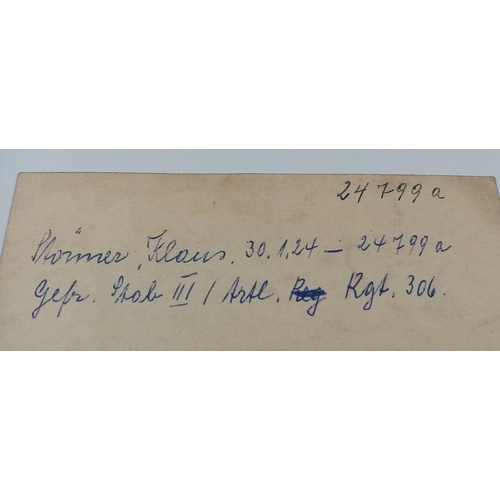 24799a
Störmer, Klaus, 30.1.24 – 24799a
Gefr. Stab III / Artl. Reg Rgt. 306.